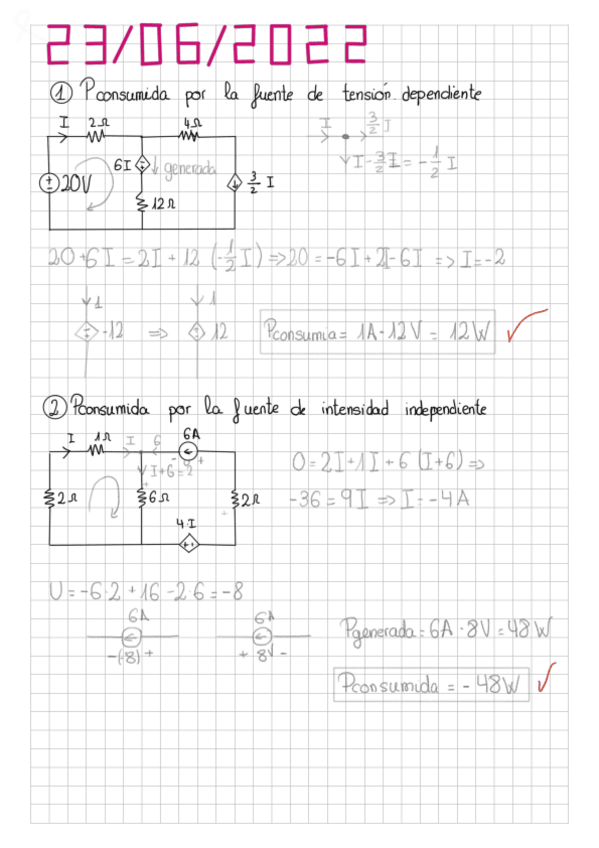 23/06/2022
① Pconsumida por la fuente de tensión dependiente
I 2Ω 4Ω I 3/2 I
6I generada I - 3/2 I = - 1/2 I
20V 3/2 I
12Ω
20+6I = 2I + 12 (-1/2 I) => 20 = -6I + 2I - 6I => I = -2
1 1
-12 => 12 Pconsumia = 1A · 12V = 12W ✓
② Pconsumida por la fuente de intensidad independiente
I 1Ω I 6 6A
- +
I+6=2 0 = 2I + 1I + 6 (I+6) =>
2Ω 6Ω 2Ω -36 = 9I => I = -4A
4·I
+ -
U = -6·2 + 16 - 2·6 = -8
6A 6A
-(-8)+ + 8V - Pgenerada = 6A · 8V = 48W
Pconsumida = - 48W ✓